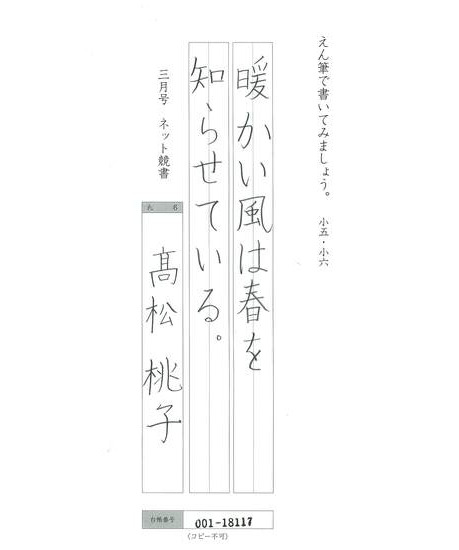 えん筆で書いてみましょう。 小五・小六
暖かい風は春を
知らせている。
三月号 ネット競書
氏 名
髙松 桃子
台帳番号
001-18117
(コピー不可)